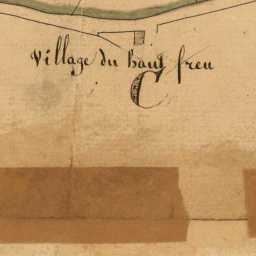 Village du haut freu
C